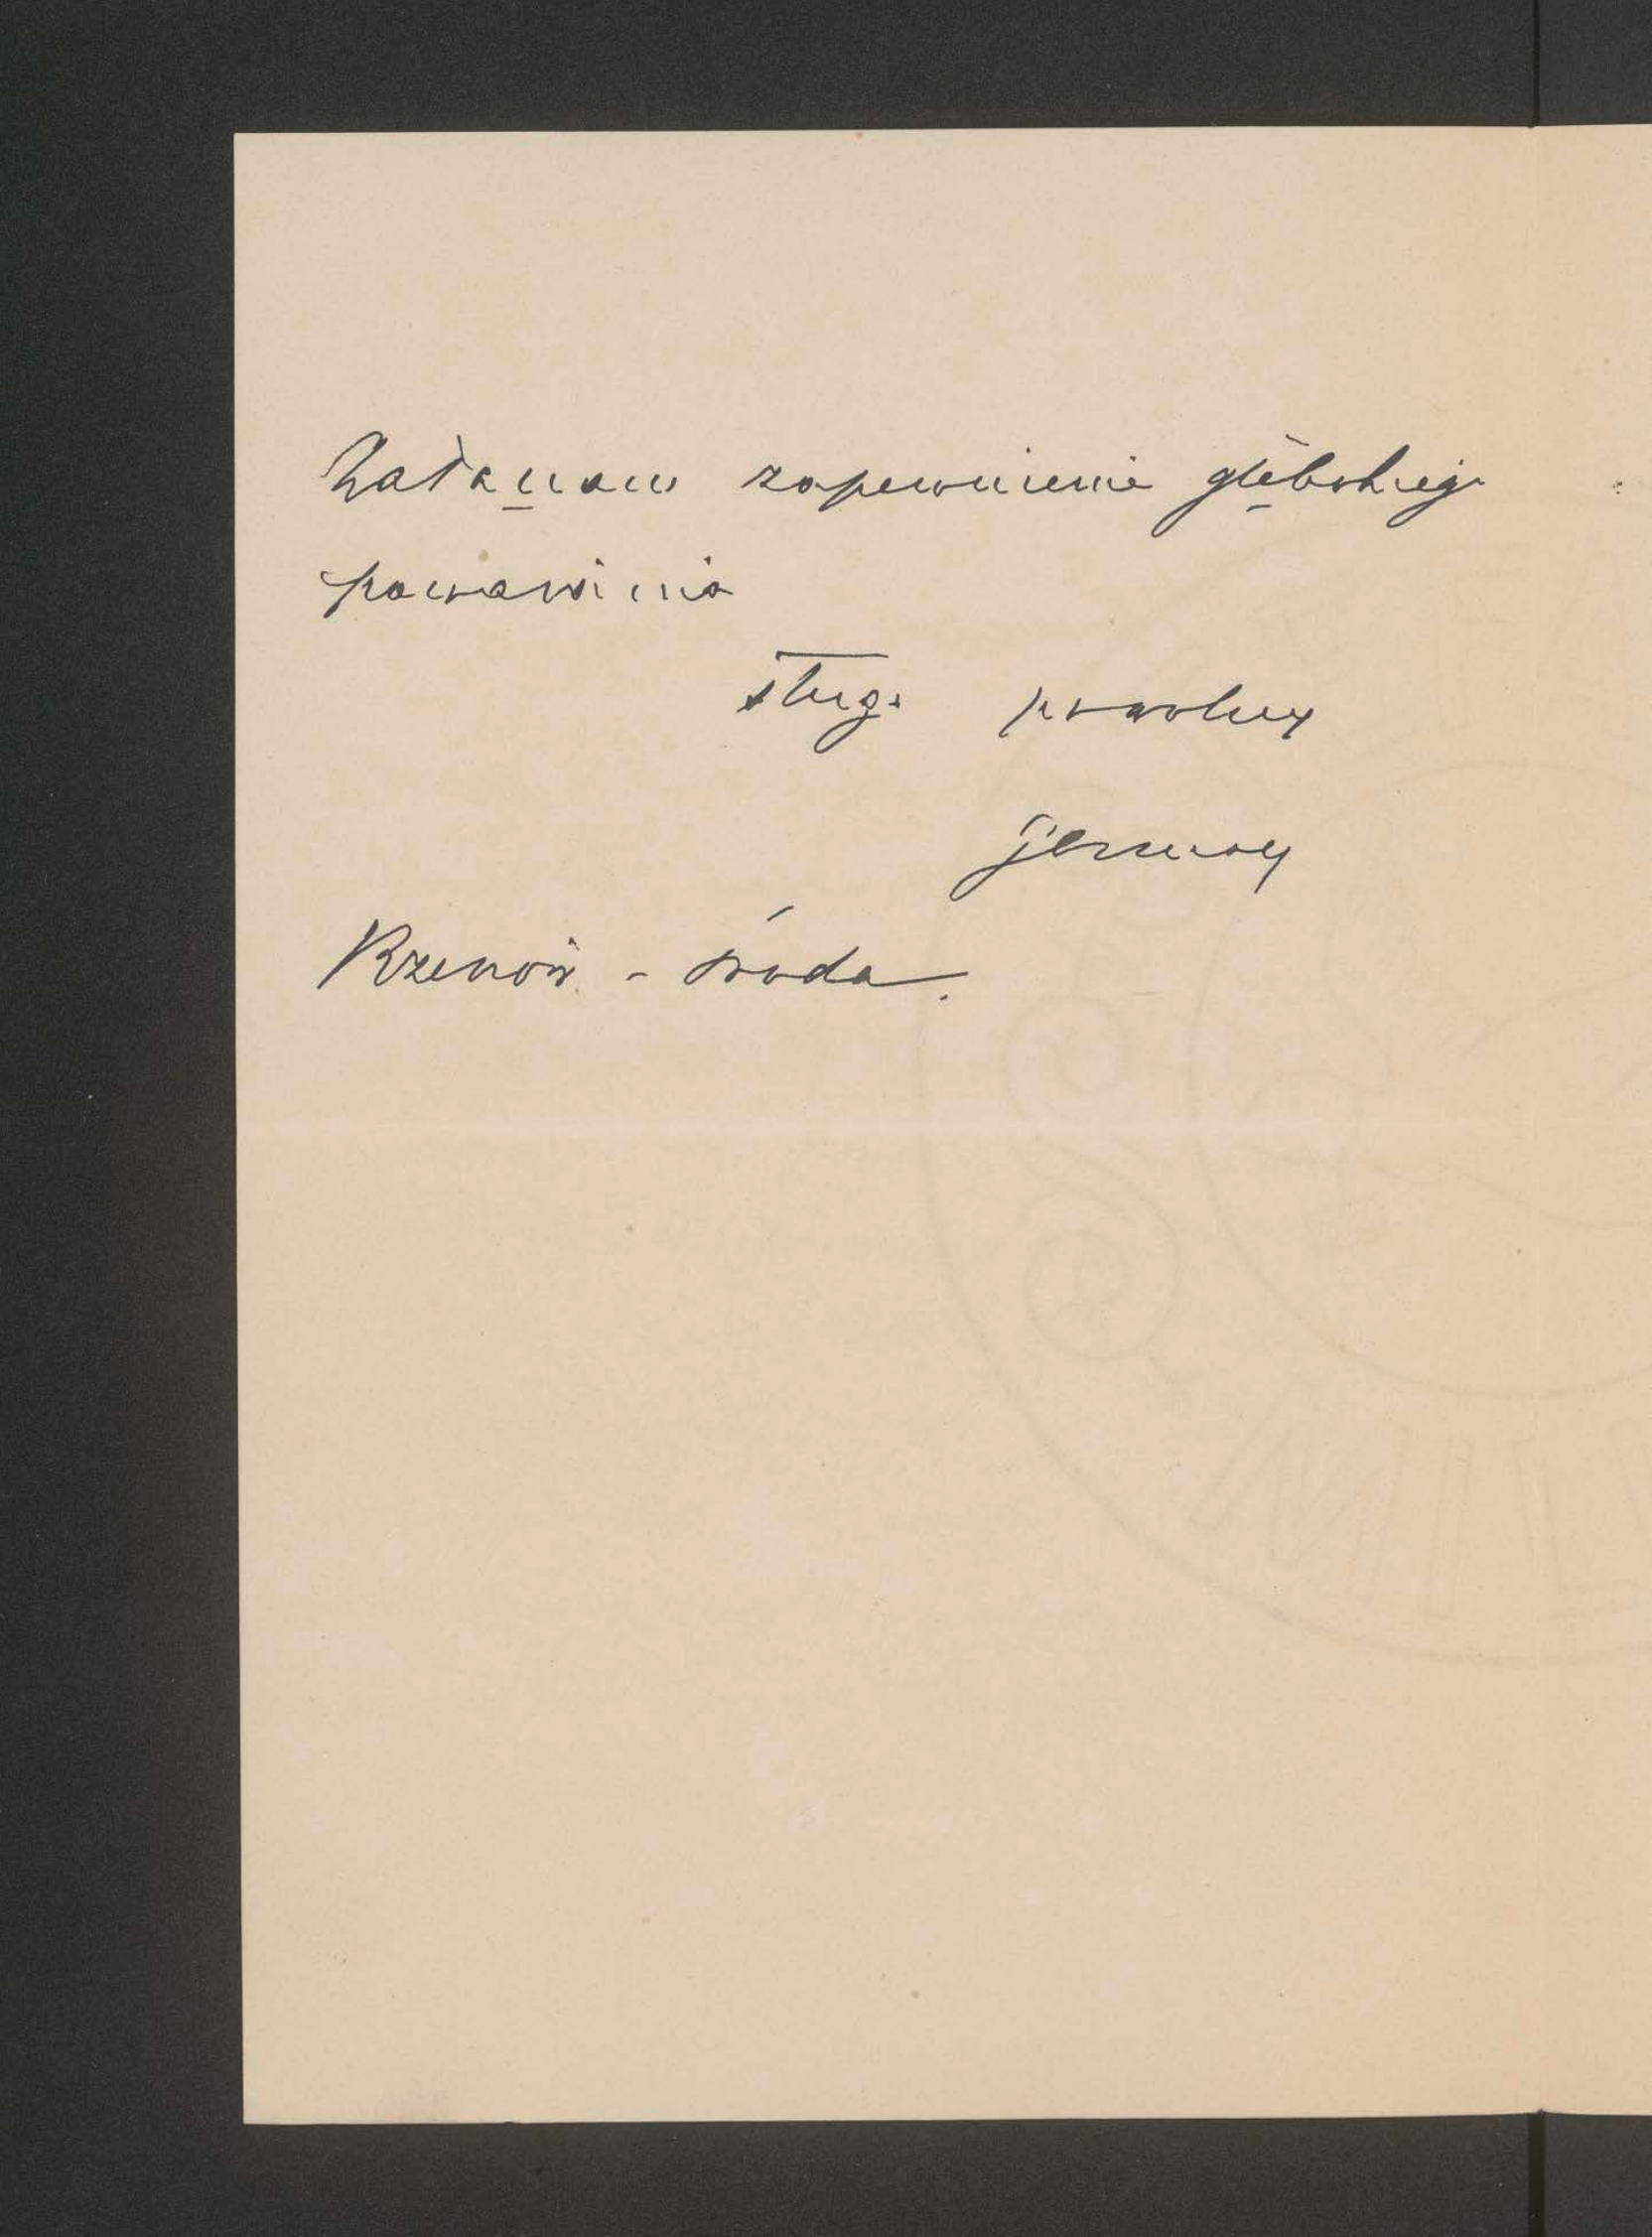 Załączam zapewnienie głębokiego
poważania
sługa powolny
Rzeszów - środa.
MIL